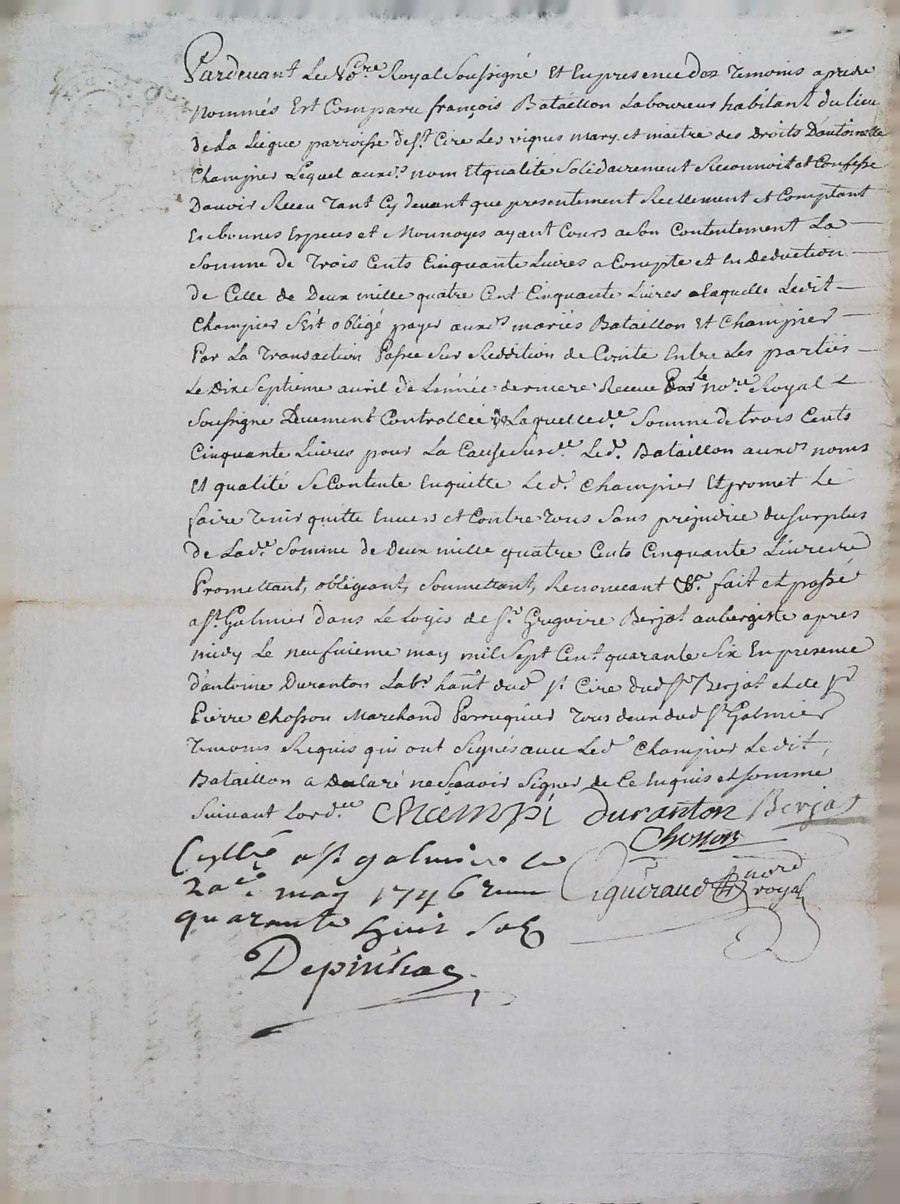 Pardevant Le No.re Royal Soussigné Et En presence des Temoins apres
Nommés Est Comparu françois Bataillon Laboureur habitant du lieu
de La Liegue parroisse de St. Cire Les vignes mary et maitre des Droits Dantoinette
Champier Lequel auxds. nom Et qualité Solidairement Reconnoit et Confesse
Davoir Receu Tant Cy devant que presentement Reellement et Comptant
En bonnes Especes et Monnoyes ayant Cours a Son Contentement La
Somme de Trois Cents Cinquante Livres a Compte et En Deduction
de Celle de Deux mille quatre Cent Cinquante Livres a laquelle Ledit
Champier S'est obligé payer auxds. mariés Bataillon Et Champier
Par La Transaction Passée Sur Reddition de Conte Entre Les parties
Le Dix Septieme avril de L'année derniere Receue Par le no.re Royal
Soussigné Duement Controllée Laquelle de. Somme de trois Cents
Cinquante Livres pour La Cause Susde. Led. Bataillon auxds. noms
Et qualité Se Contente En quitte Led. Champier Et promet Le
faire Tenir quitte Envers et Contre Tous Sans prejudice du Surplus
de Lade. Somme de Deux mille quatre Cents Cinquante Livres
Promettant, obligeant, Soumettant, Renoncant &c. fait et passé
a St. Galmier dans Le Logis de Sr. Gregoire Berjat aubergiste apres
midy Le neufvieme may mil Sept Cent quarante Six En presence
d'antoine Duranton Labr. hant. dud. St. Cire dud. Sr. Berjat et de Sr.
Pierre Chosson Marchand Perruquier Tous deux dud. St. Galmier
Temoins Requis qui ont Signés avec Led. Champier Ledit
Bataillon a Declaré ne Scavoir Signer de Ce Enquis et Somme
Suivant Lordce.
Champi Duranton Berjat
Chosson
Cyllé a St. galmier le
20 may 1746
quarante huit Sols
Gigueraud nore royal